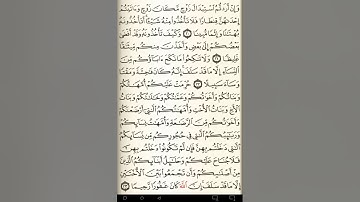 وَإِنْ أَرَدتُّمُ ٱسْتِبْدَالَ زَوْجٍ مَّكَانَ زَوْجٍ وَءَاتَيْتُمْ
إِحْدَىٰهُنَّ قِنطَارًا فَلَا تَأْخُذُوا۟ مِنْهُ شَيْـًٔا أَتَأْخُذُونَهُۥ
بُهْتَٰنًا وَإِثْمًا مُّبِينًا ٢٠ وَكَيْفَ تَأْخُذُونَهُۥ وَقَدْ أَفْضَىٰ
بَعْضُكُمْ إِلَىٰ بَعْضٍ وَأَخَذْنَ مِنكُم مِّيثَٰقًا
غَلِيظًا ٢١ وَلَا تَنكِحُوا۟ مَا نَكَحَ ءَابَآؤُكُم مِّنَ
ٱلنِّسَآءِ إِلَّا مَا قَدْ سَلَفَ إِنَّهُۥ كَانَ فَٰحِشَةً وَمَقْتًا
وَسَآءَ سَبِيلًا ٢٢ حُرِّمَتْ عَلَيْكُمْ أُمَّهَٰتُكُمْ
وَبَنَاتُكُمْ وَأَخَوَٰتُكُمْ وَعَمَّٰتُكُمْ وَخَٰلَٰتُكُمْ وَبَنَاتُ
ٱلْأَخِ وَبَنَاتُ ٱلْأُخْتِ وَأُمَّهَٰتُكُمُ ٱلَّٰتِىٓ أَرْضَعْنَكُمْ
وَأَخَوَٰتُكُم مِّنَ ٱلرَّضَٰعَةِ وَأُمَّهَٰتُ نِسَآئِكُمْ
وَرَبَٰٓئِبُكُمُ ٱلَّٰتِى فِى حُجُورِكُم مِّن نِّسَآئِكُمُ
ٱلَّٰتِى دَخَلْتُم بِهِنَّ فَإِن لَّمْ تَكُونُوا۟ دَخَلْتُم بِهِنَّ
فَلَا جُنَاحَ عَلَيْكُمْ وَحَلَٰٓئِلُ أَبْنَآئِكُمُ ٱلَّذِينَ
مِنْ أَصْلَٰبِكُمْ وَأَن تَجْمَعُوا۟ بَيْنَ ٱلْأُخْتَيْنِ
إِلَّا مَا قَدْ سَلَفَ إِنَّ ٱللَّهَ كَانَ غَفُورًا رَّحِيمًا ٢٣